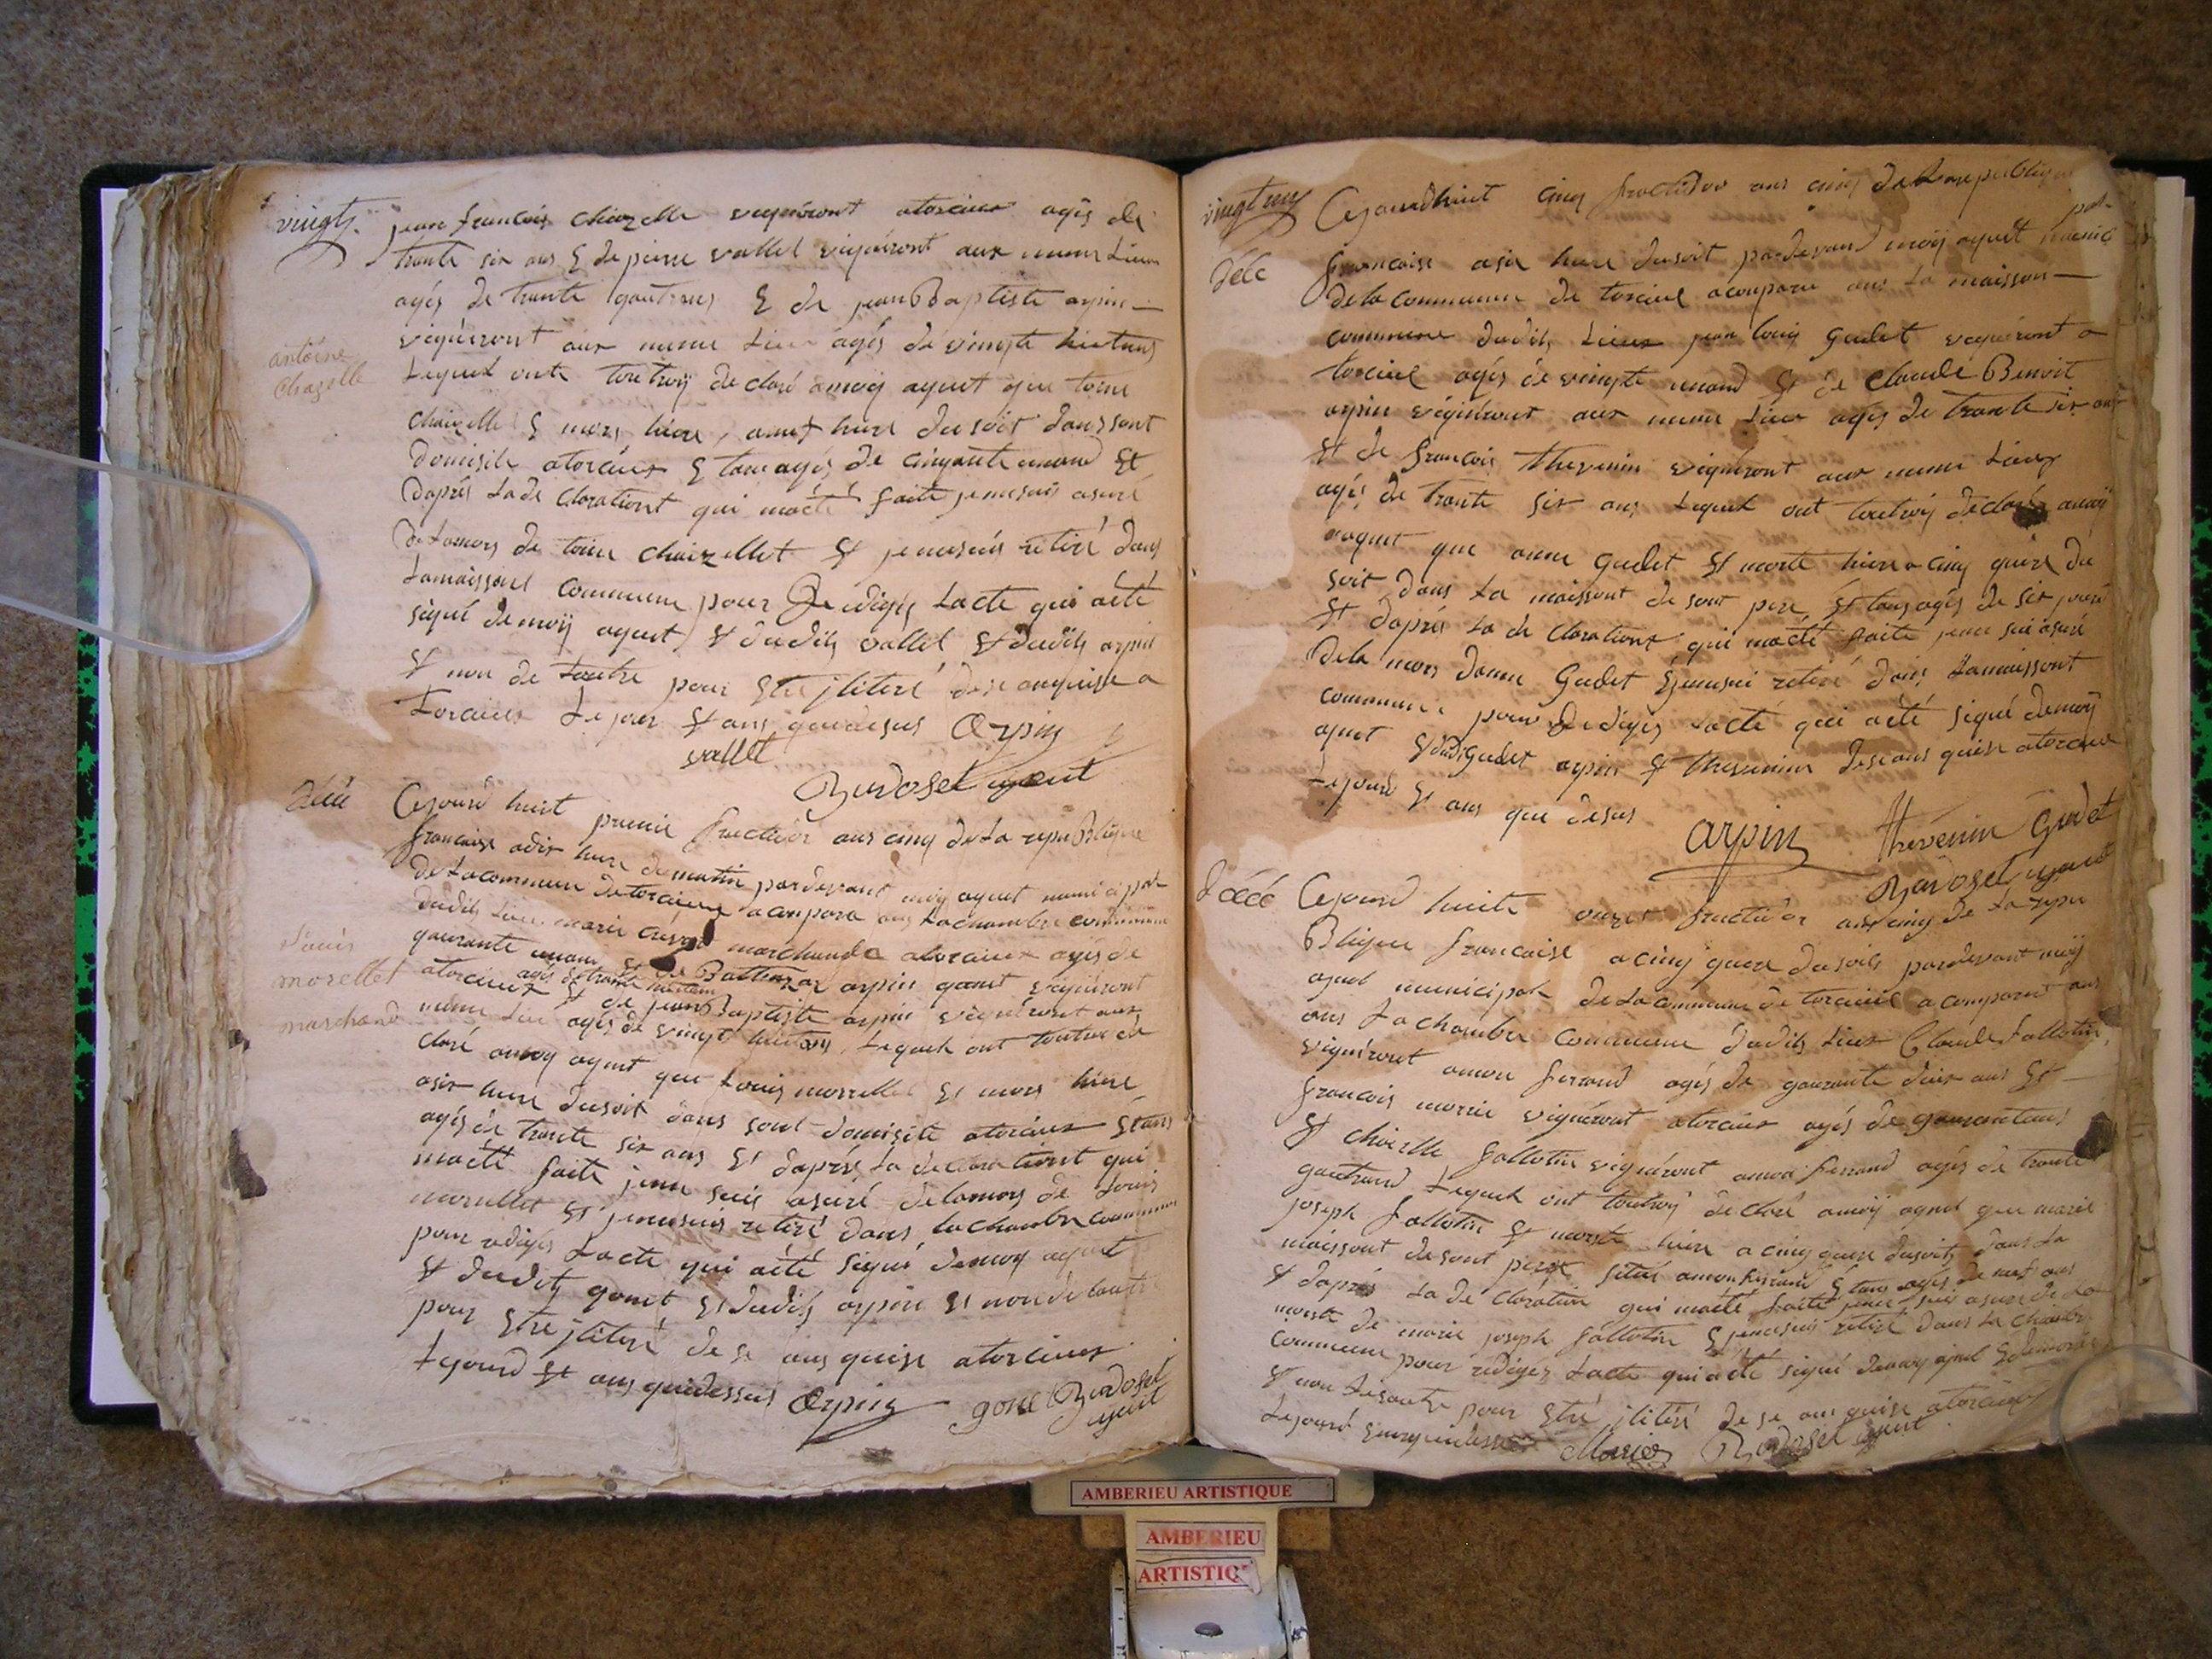 vingts
jean francois chiazelle vegniront atorcieux agés de
trante six ans & de pierre vallet vigniront aux meme Lieu
agés de trante quatrens & de jean Baptiste arpin
vigniront aux meme Lieu agés de vingte hietans
antoine
Chazelle
Lequel onte toutroÿ declaré amoÿ agent que toine
chaizelle & mors hiere, aneuf hure dusoit dans sont
domisile atorcieux & tans agés de cinquante unand Et
daprés Lade Clarationt qui maété faite jemesuis asuré
de Lamors de toine chaizellet Et jemesuis retiré dans
Lamaissont commune pour Redigés Lacte qui aété
signé demoÿ agent Et dudits vallet Et dudits arpin
Et non de Lautre pour Etre jliteré dese anquise a
torcieux Lejour Et ans quedesus Arpin
vallet
Burdoset agent
décé
Cejourd huit premié fructidor ans cinq de La republique
francaise adix hure dematin pardevant moÿ agent municipal
de La commune de torcieux acompara ans Lachambre commune
dudits Lieu marie marchande atorcieux agés de
Louis
morellet
marchand
quarante unans Et de Baltazar arpin gonet vigniront
agés de trante
atorcieux Et de jean Baptiste arpin vigniront aux
meme Lieu agés de vingt hietans, Lequel ont toutroi de
claré amoÿ agent que Louis morrellet Et mors hiere
asix hure dusoit dans sont domisile atorcieux Etans
agés de trante six ans Et daprés La declarationt qui
maété faite jeme suis asuré delamors de Louis
morellet Et jemesuis retiré dans La chambre commune
pour redigés Lacte qui aété signé demoÿ agent
Et dudits gonet Et dudits arpin Et non de Lautre
pour Etre jliteré dese ans quise atorcieux
Lejourd Et ans quedessus Arpin gonet Burdoset
agent
vingt un
Cejourdhuit cinq fructidor ans cinq de La republique
décé
francaise asix hure dusoit pardevant moÿ agent munici
pal
de la commune de torcieux acompara ans La maisson
commune dudits Lieux jean louis gudet vegniront a
torcieux agés de vingte unand Et de claude Benoit
arpin vigniront aux meme Lieux agés de trante six ans
Et de francois thevenin vigniront aux meme Lieux
agés de trante six ans Lequel ont toutroÿ declaré amoÿ
agent que anne gudet Et morte hiere a cinq qure du
soit dans La maissont de sont pere Et tans agés de six jours
Et daprés La de Clarationt qui maété faite jeme sui asuré
de la mors danne Gudet Et jemesui retiré dans Lamaissont
commune pour Redigés Lacté qui aété signé demoÿ
agent Et dudi gudet arpin Et thevenin dese ans quise atorcieux
Lejourd Et ans que desus
arpin thevenin Gudet
Burdoset agent
décéé
Cejourd huite onzes fructidor ans cinq de La repu
Blique francaise acinq qure dusoits pardevant moÿ
agent municipal de La commune de torcieux acomparut ans
ans La chambre commune dudits Lieux Claude fallotin
vigniront amon ferrand agés de quarante deux ans Et
francois morrie vigniront atorcieux agés de quarantans
Et chiarlle fallotin vigniront amon ferrand agés de trante
quatrand Lequel ont toutroÿ declaré amoÿ agent que marie
joseph fallotin Et morste hiere a cinq qure dusoits dans La
maissont desont perre situé amon ferrand Etans agés de neuf ans
Et daprés La de Claration qui maété faite jeme suis asuré de La
morste de marie joseph fallotin Et jemesuis retiré dans La chambre
commune pour redigez Lacte qui aété signé demoÿ agent Et demorie
Et non Lesautre pour Etré jliteré de se ans quise atorcieux
Lejourd Et ans quedessus Morier Burdoset agent
AMBERIEU ARTISTIQUE
AMBERIEU
ARTISTIQ